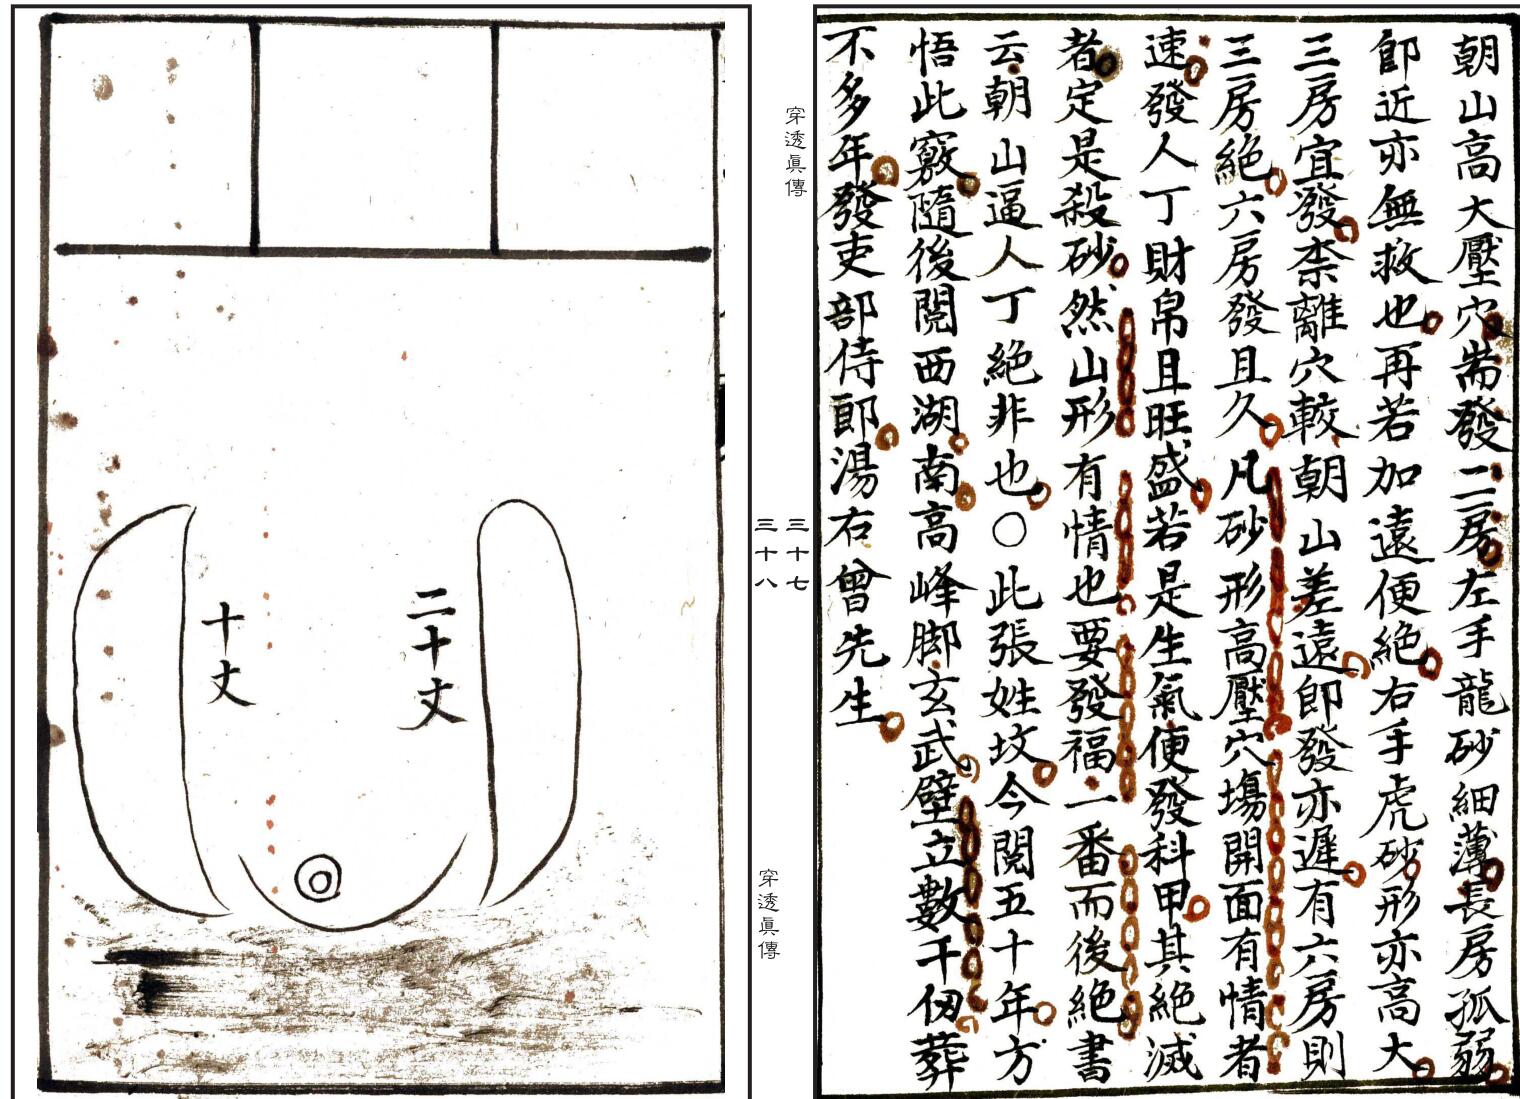 朝山高大壓穴耑發一二房左手龍砂細薄長房孤弱
卽近亦無救也再若加遠便絕右手虎砂形亦高大
三房宜發柰離穴較朝山差遠卽發亦遲有六房則
三房絕六房發且久凡砂形高壓穴塲開面有情者
速發人丁財帛且旺盛若是生氣便發科甲其絕滅
者定是殺砂然山形有情也要發福一番而後絕書
云朝山逼人丁絕非也〇此張姓坟今閱五十年方
悟此竅隨後閱西湖南高峰脚玄武壁立數千仞葬
不多年發吏部侍郎湯右曾先生
穿透眞傳
三十七
三十八
穿透眞傳
二十丈
十丈